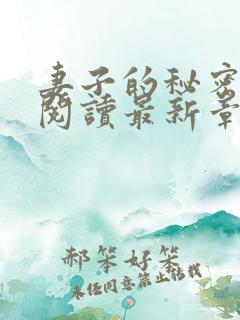 妻子的秘密
閱讀最新章
郝笨好笨
未经同意禁止转载